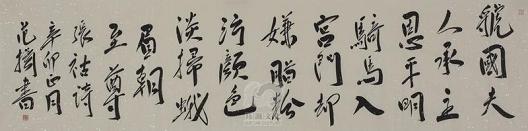 虢國夫
人承主
恩平明
騎馬入
宮門却
嫌脂粉
污顏色
淡掃蛾
眉朝
至尊
張祜詩
辛卯正月
范書